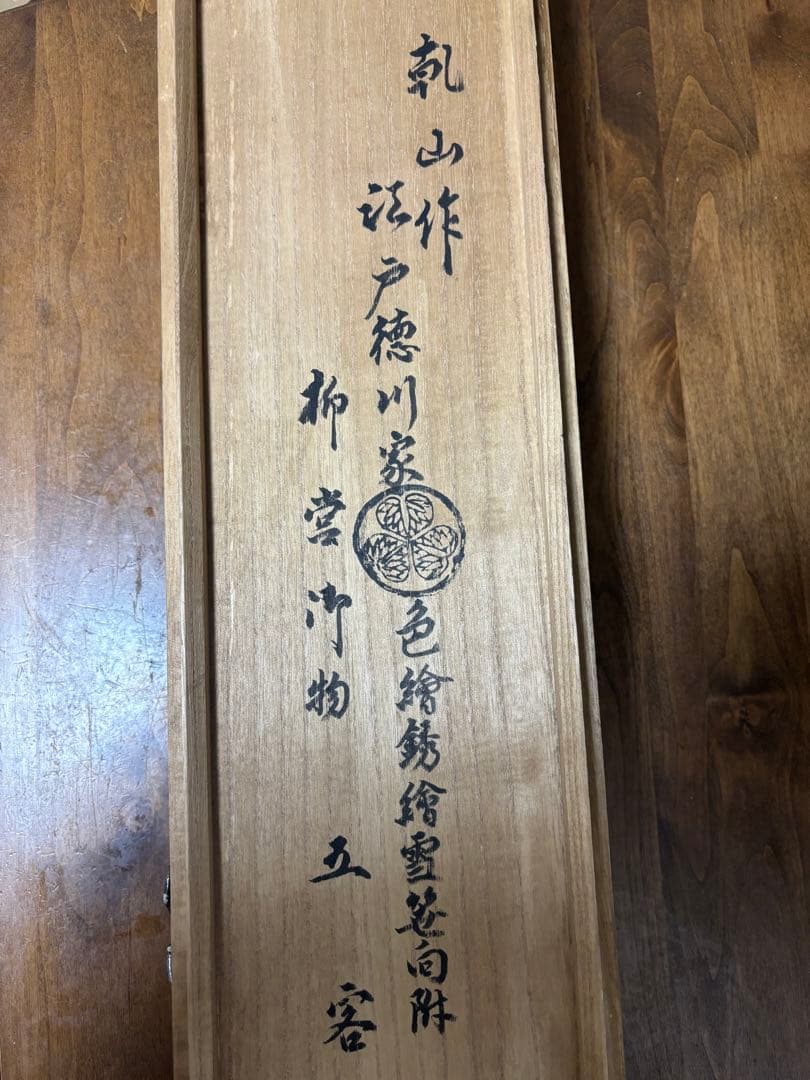 乾山作
江戸徳川家
色繪銹繪雪笹向附
柳営御物
五客